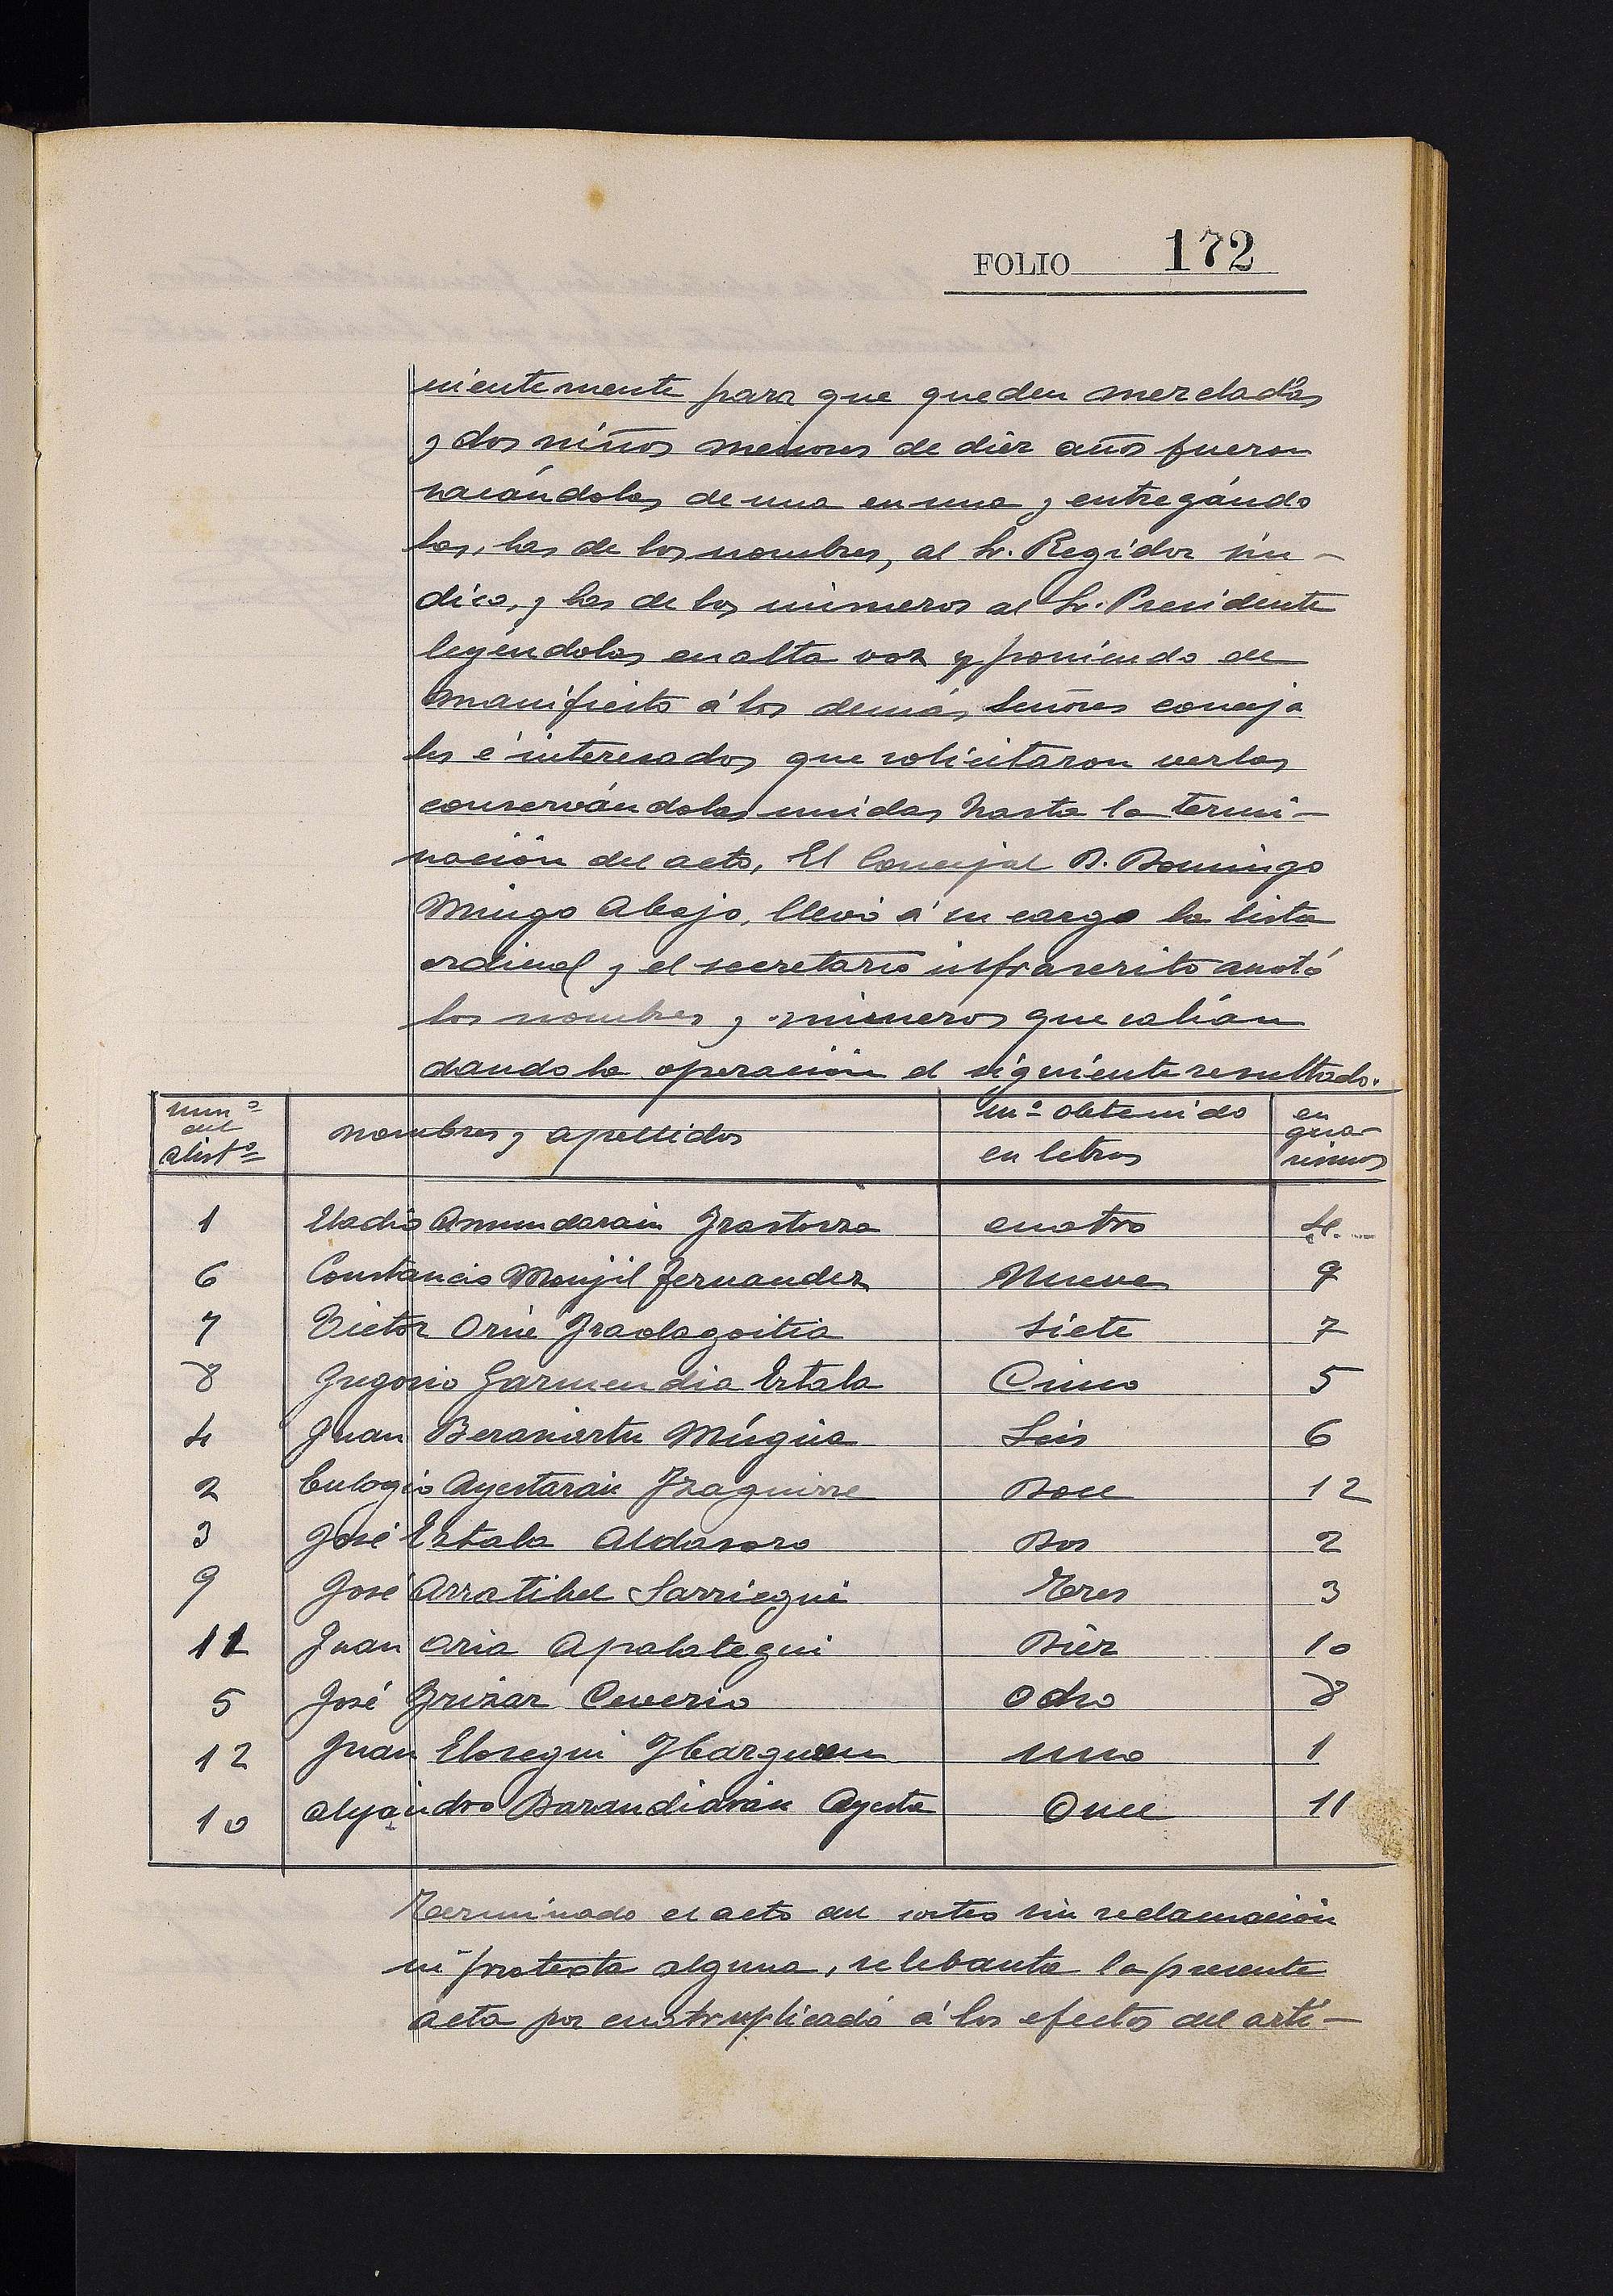 FOLIO 172
nientemente para que queden mezcladas
y dos niños menores de diez años fueron
sacándolas de una en una y entregándo
las, las de los nombres, al Sr. Regidor sin-
dico, y las de los números al Sr. Presidente
leyéndolas en alta voz y poniendo de
manifiesto á los demás Señores conceja
les é interesados que solicitaron verlas
conservándolas unidas hasta la termi-
nación del acto, El Concejal D. Domingo
Mingo Abajo, llevó á su cargo la lista
ordinal y el secretario infrascrito anotó
los nombres y números que salián
dando la operación el siguiente resultado.
num.º del alistº nombres y apellidos nº obtenido en letras en guarismos
1 Eladio Amundarain Irastorza cuatro 4.
6 Constancio Monjil Fernandez Nueve 9
7 Victor Orúe Iraolagoitia Siete 7
8 Gregorio Garmendia Estala Cinco 5
4 Juan Beraniartu Múgica Seis 6
2 Eulogio Ayestarán Izaguirre Doce 12
3 José Estala Aldasoro Dos 2
9 José Arratibel Sarriegui Tres 3
11 Juan Oria Apalategui Diez 10
5 José Irizar Ceverio Ocho 8
12 Juan Elosegui Ibarguren uno 1
10 Alejandro Barandiarán Ayesta Once 11
Terminado el acto del sorteo sin reclamación
ni protesta alguna, se lebanta la presente
acta por cuatruplicado á los efectos del artí-